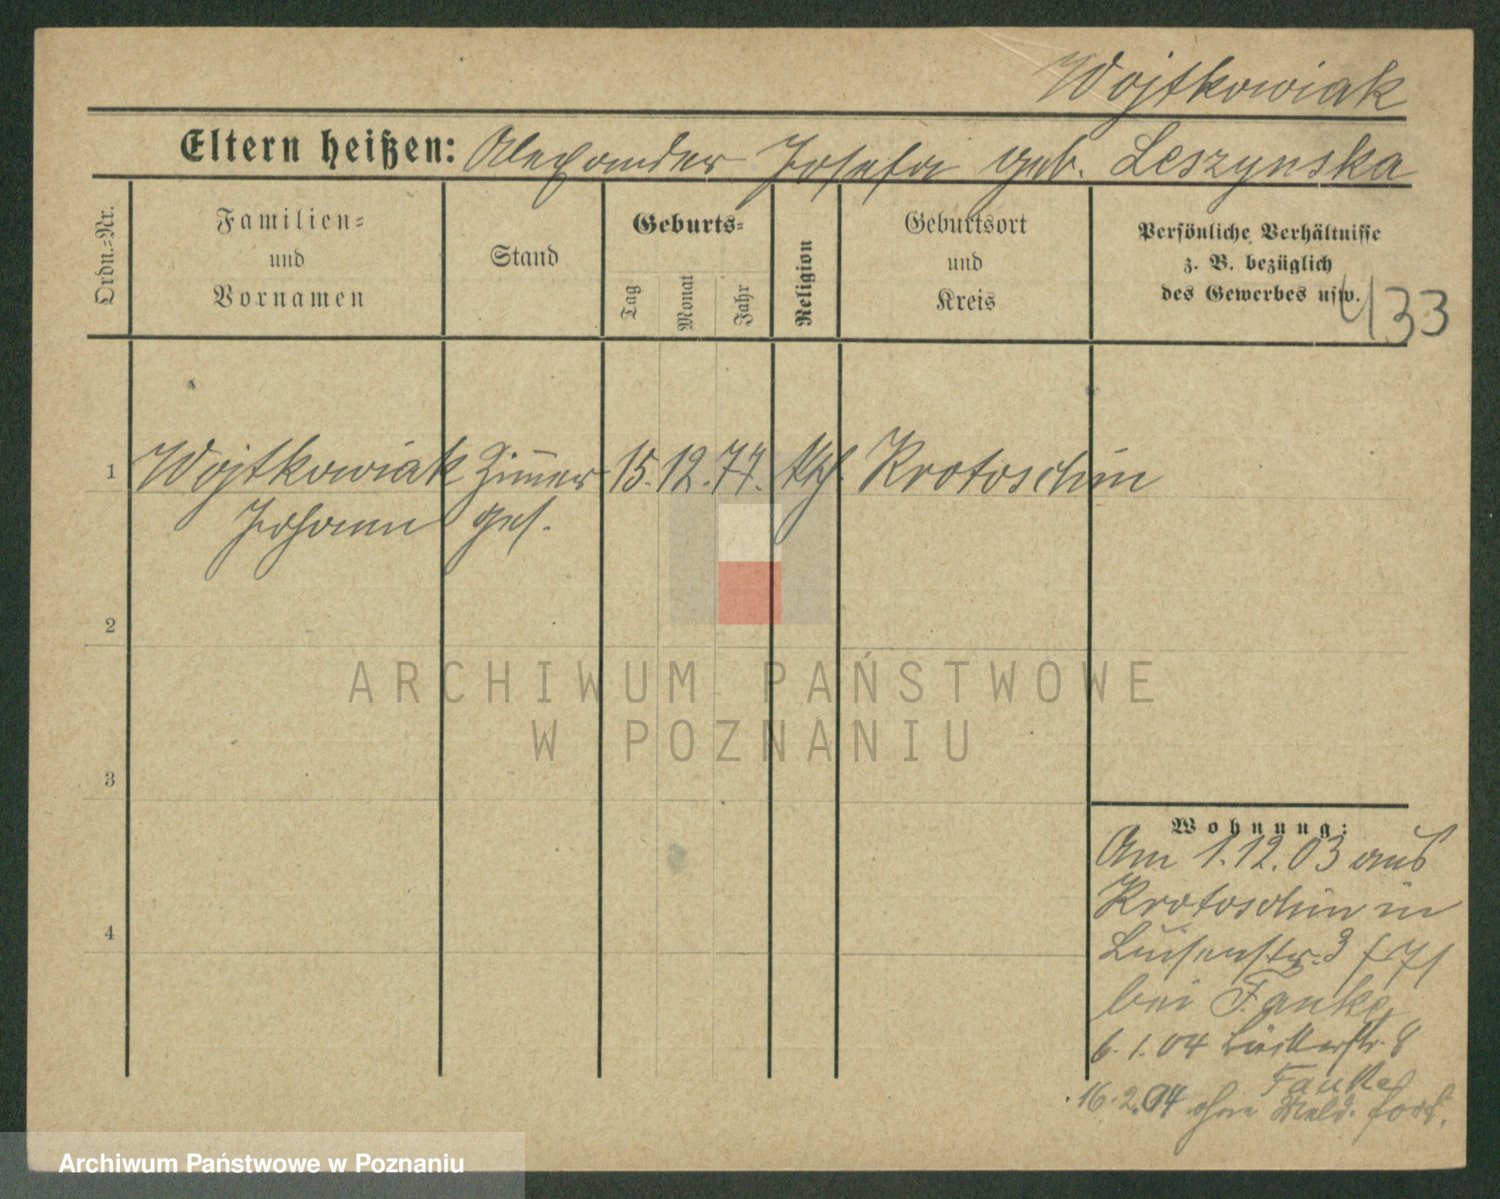 Wojtkowiak
Eltern heißen: Alexander Josefa geb. Leszynska
Ordn.=Nr.
Familien=
und
Vornamen
Stand
Geburts=
Tag
Monat
Jahr
Religion
Geburtsort
und
Kreis
Persönliche Verhältnisse
z. B. bezüglich
des Gewerbes usw.
133
1 Wojtkowiak Zimmer 15. 12. 77. kth. Krotoschin
Johann ges.
2
3
4
Wohnung:
Am 1.12.03 aus
Krotoschin in
Luisenstr. 3
bei Fanke
6.1.04 Bäckerstr. 8
Fanke
16.2.04 ohne Meld. fort.
ARCHIWUM PAŃSTWOWE
W POZNANIU
Archiwum Państwowe w Poznaniu